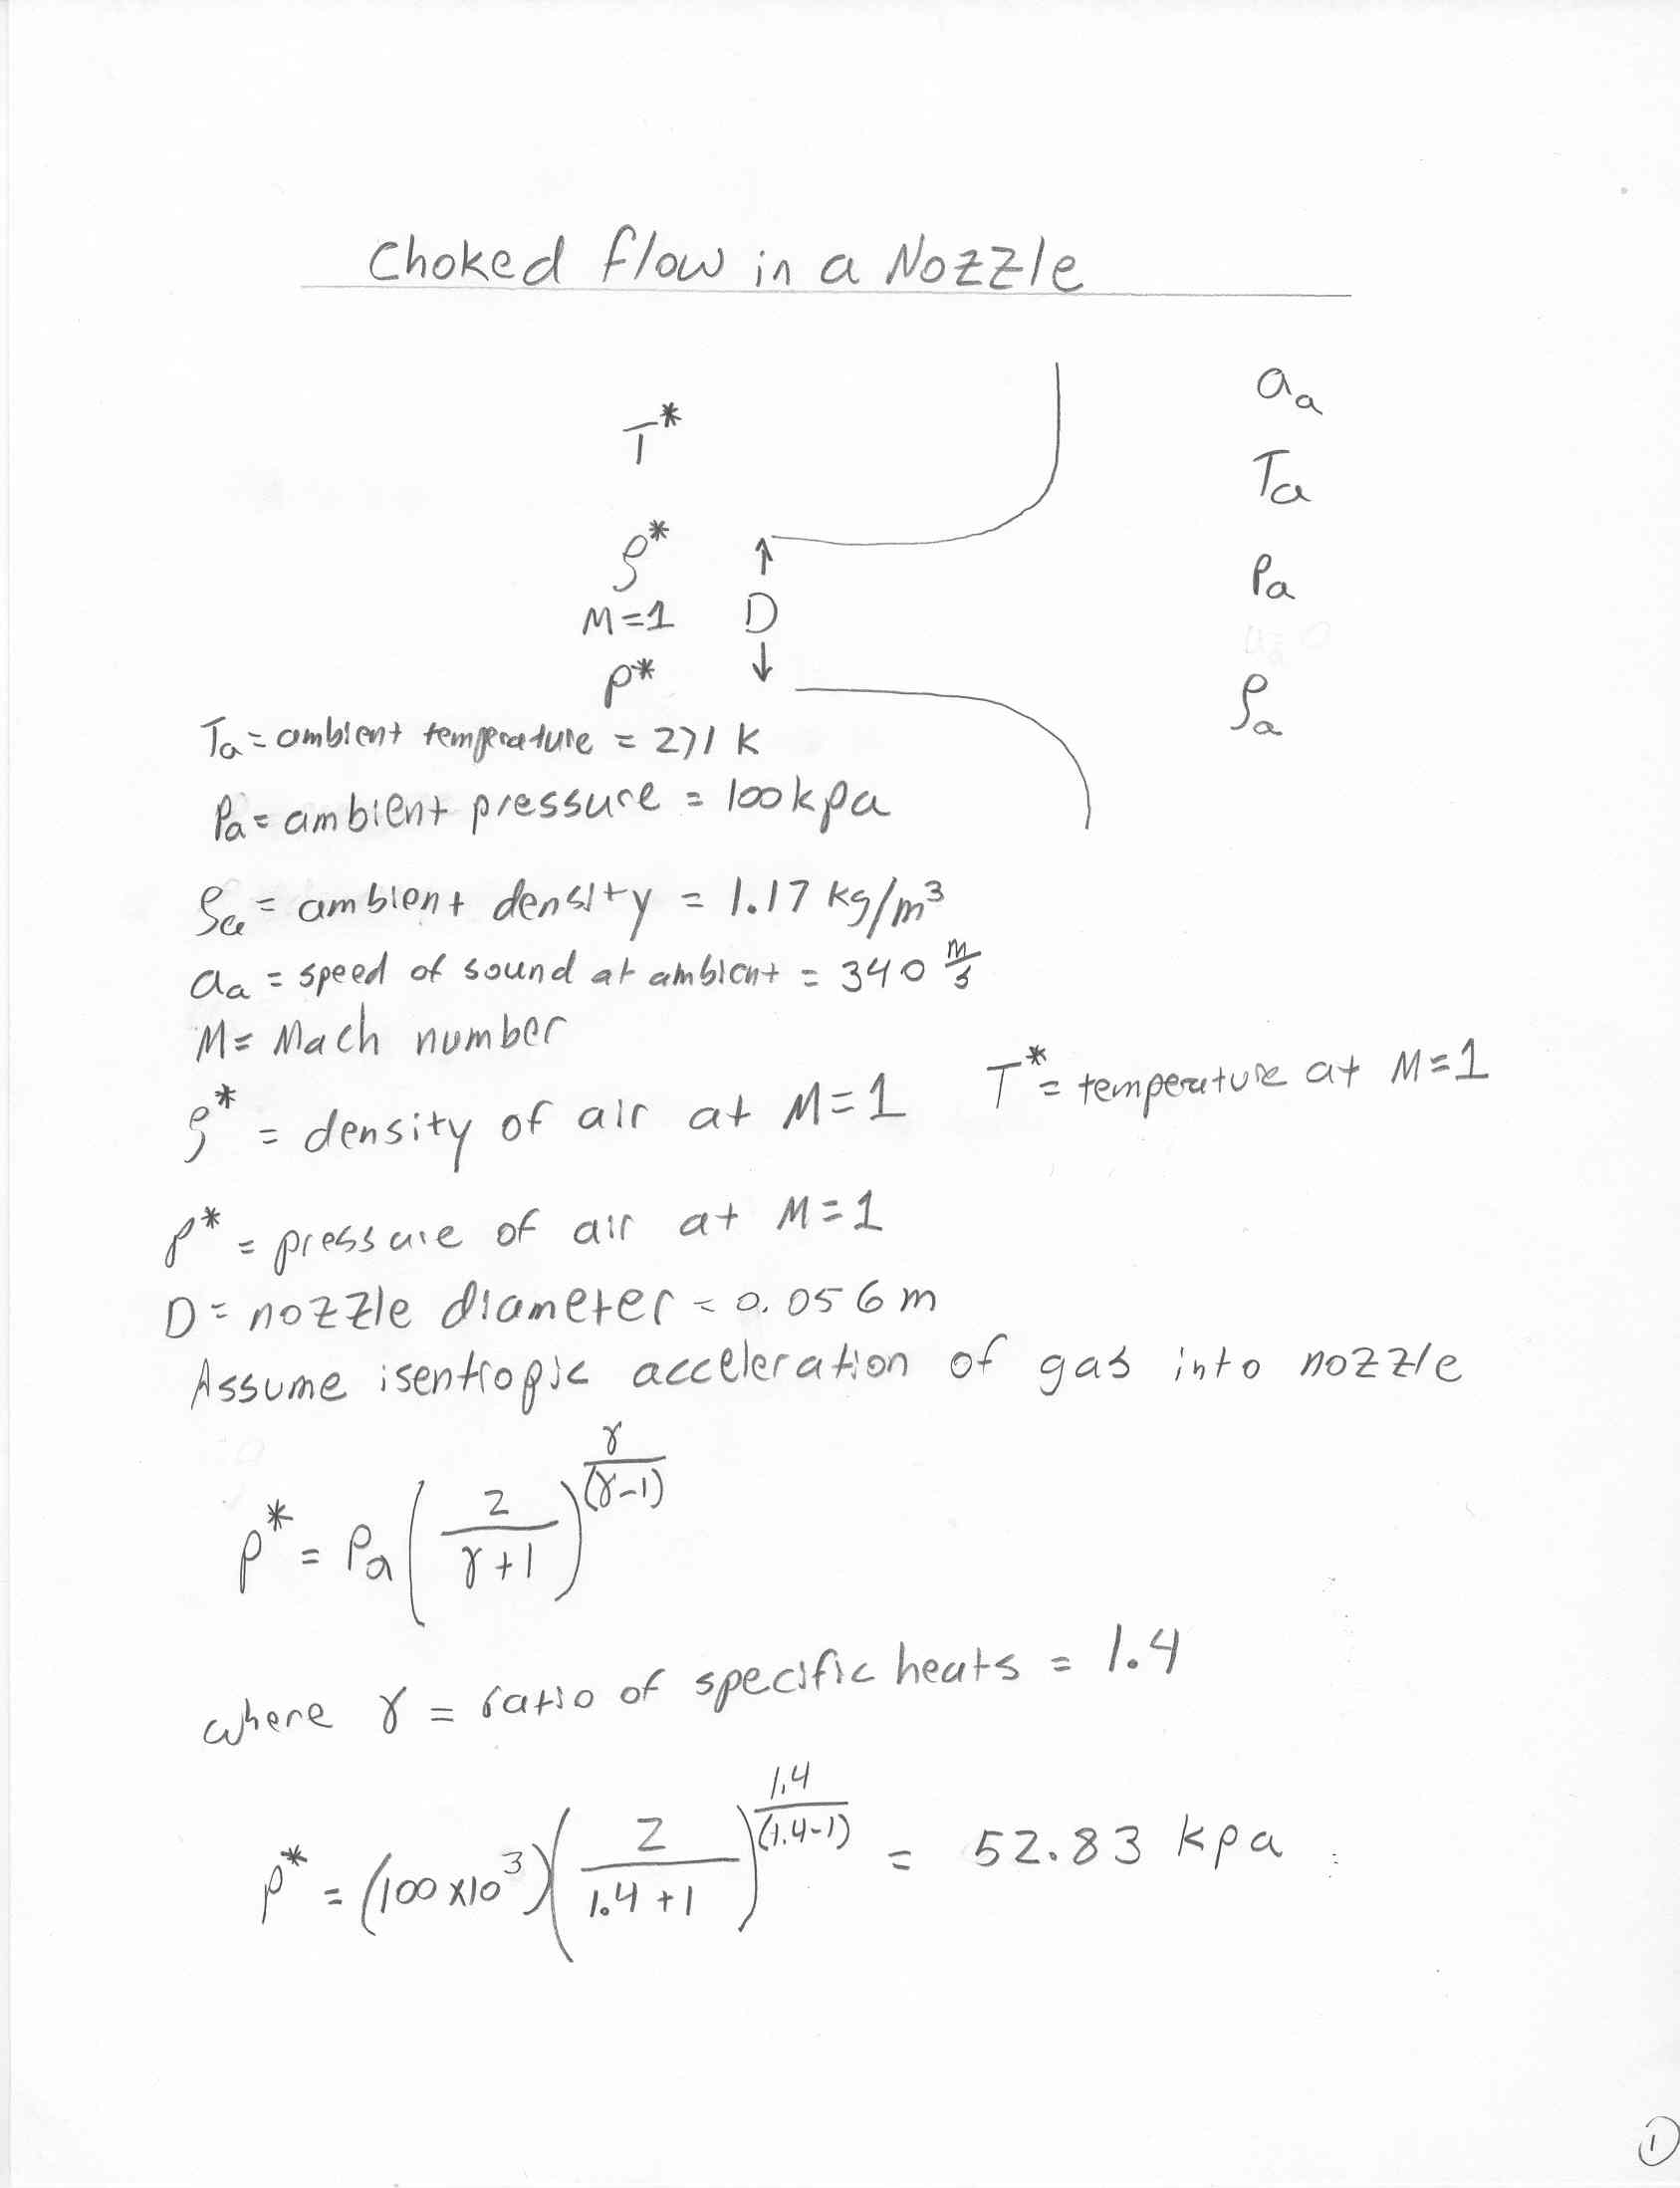 Choked flow in a Nozzle
T*
ρ*
M=1
D
P*
a_a
T_a
P_a
ρ_a
T_a = ambient temperature = 271 K
P_a = ambient pressure = 100 kpa
ρ_a = ambient density = 1.17 kg/m³
a_a = speed of sound at ambient = 340 m/s
M = Mach number
ρ* = density of air at M=1 T* = temperature at M=1
P* = pressure of air at M=1
D = nozzle diameter = 0.056 m
Assume isentropic acceleration of gas into nozzle
P* = P_a (2/(γ+1))^(γ/(γ-1))
where γ = ratio of specific heats = 1.4
P* = (100 x10³)(2/(1.4+1))^(1.4/(1.4-1)) = 52.83 kpa
1